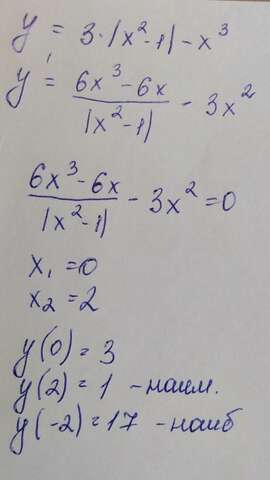 y = 3·|x²-1| - x³
y' = (6x³-6x)/|x²-1| - 3x²
(6x³-6x)/|x²-1| - 3x² = 0
x₁ = 0
x₂ = 2
y(0) = 3
y(2) = 1 - наим.
y(-2) = 17 - наиб